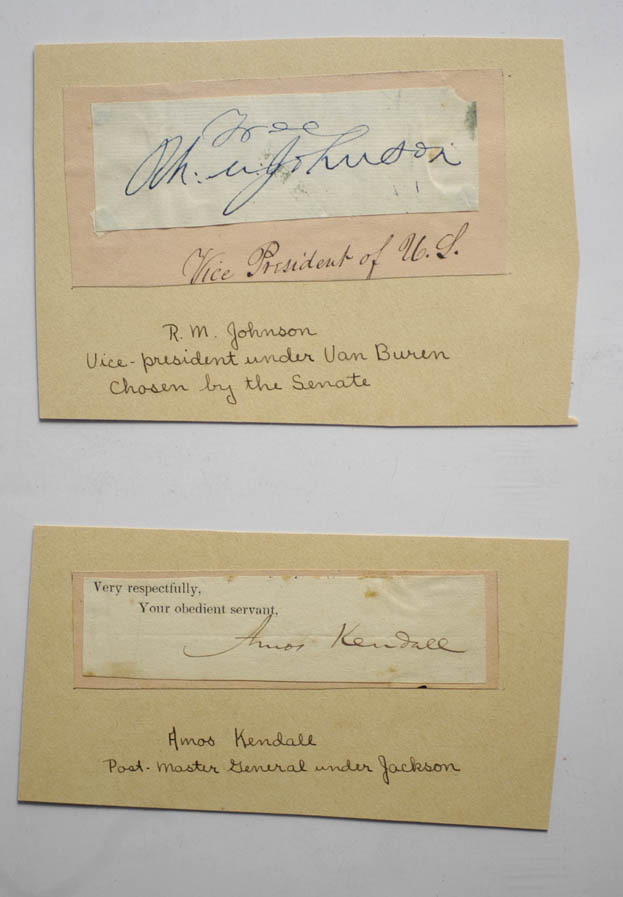 Free
Rh. M. Johnson
Vice President of U.S.
R. M. Johnson
Vice-president under Van Buren
Chosen by the Senate
Very respectfully,
Your obedient servant,
Amos Kendall
Amos Kendall
Post-Master General under Jackson